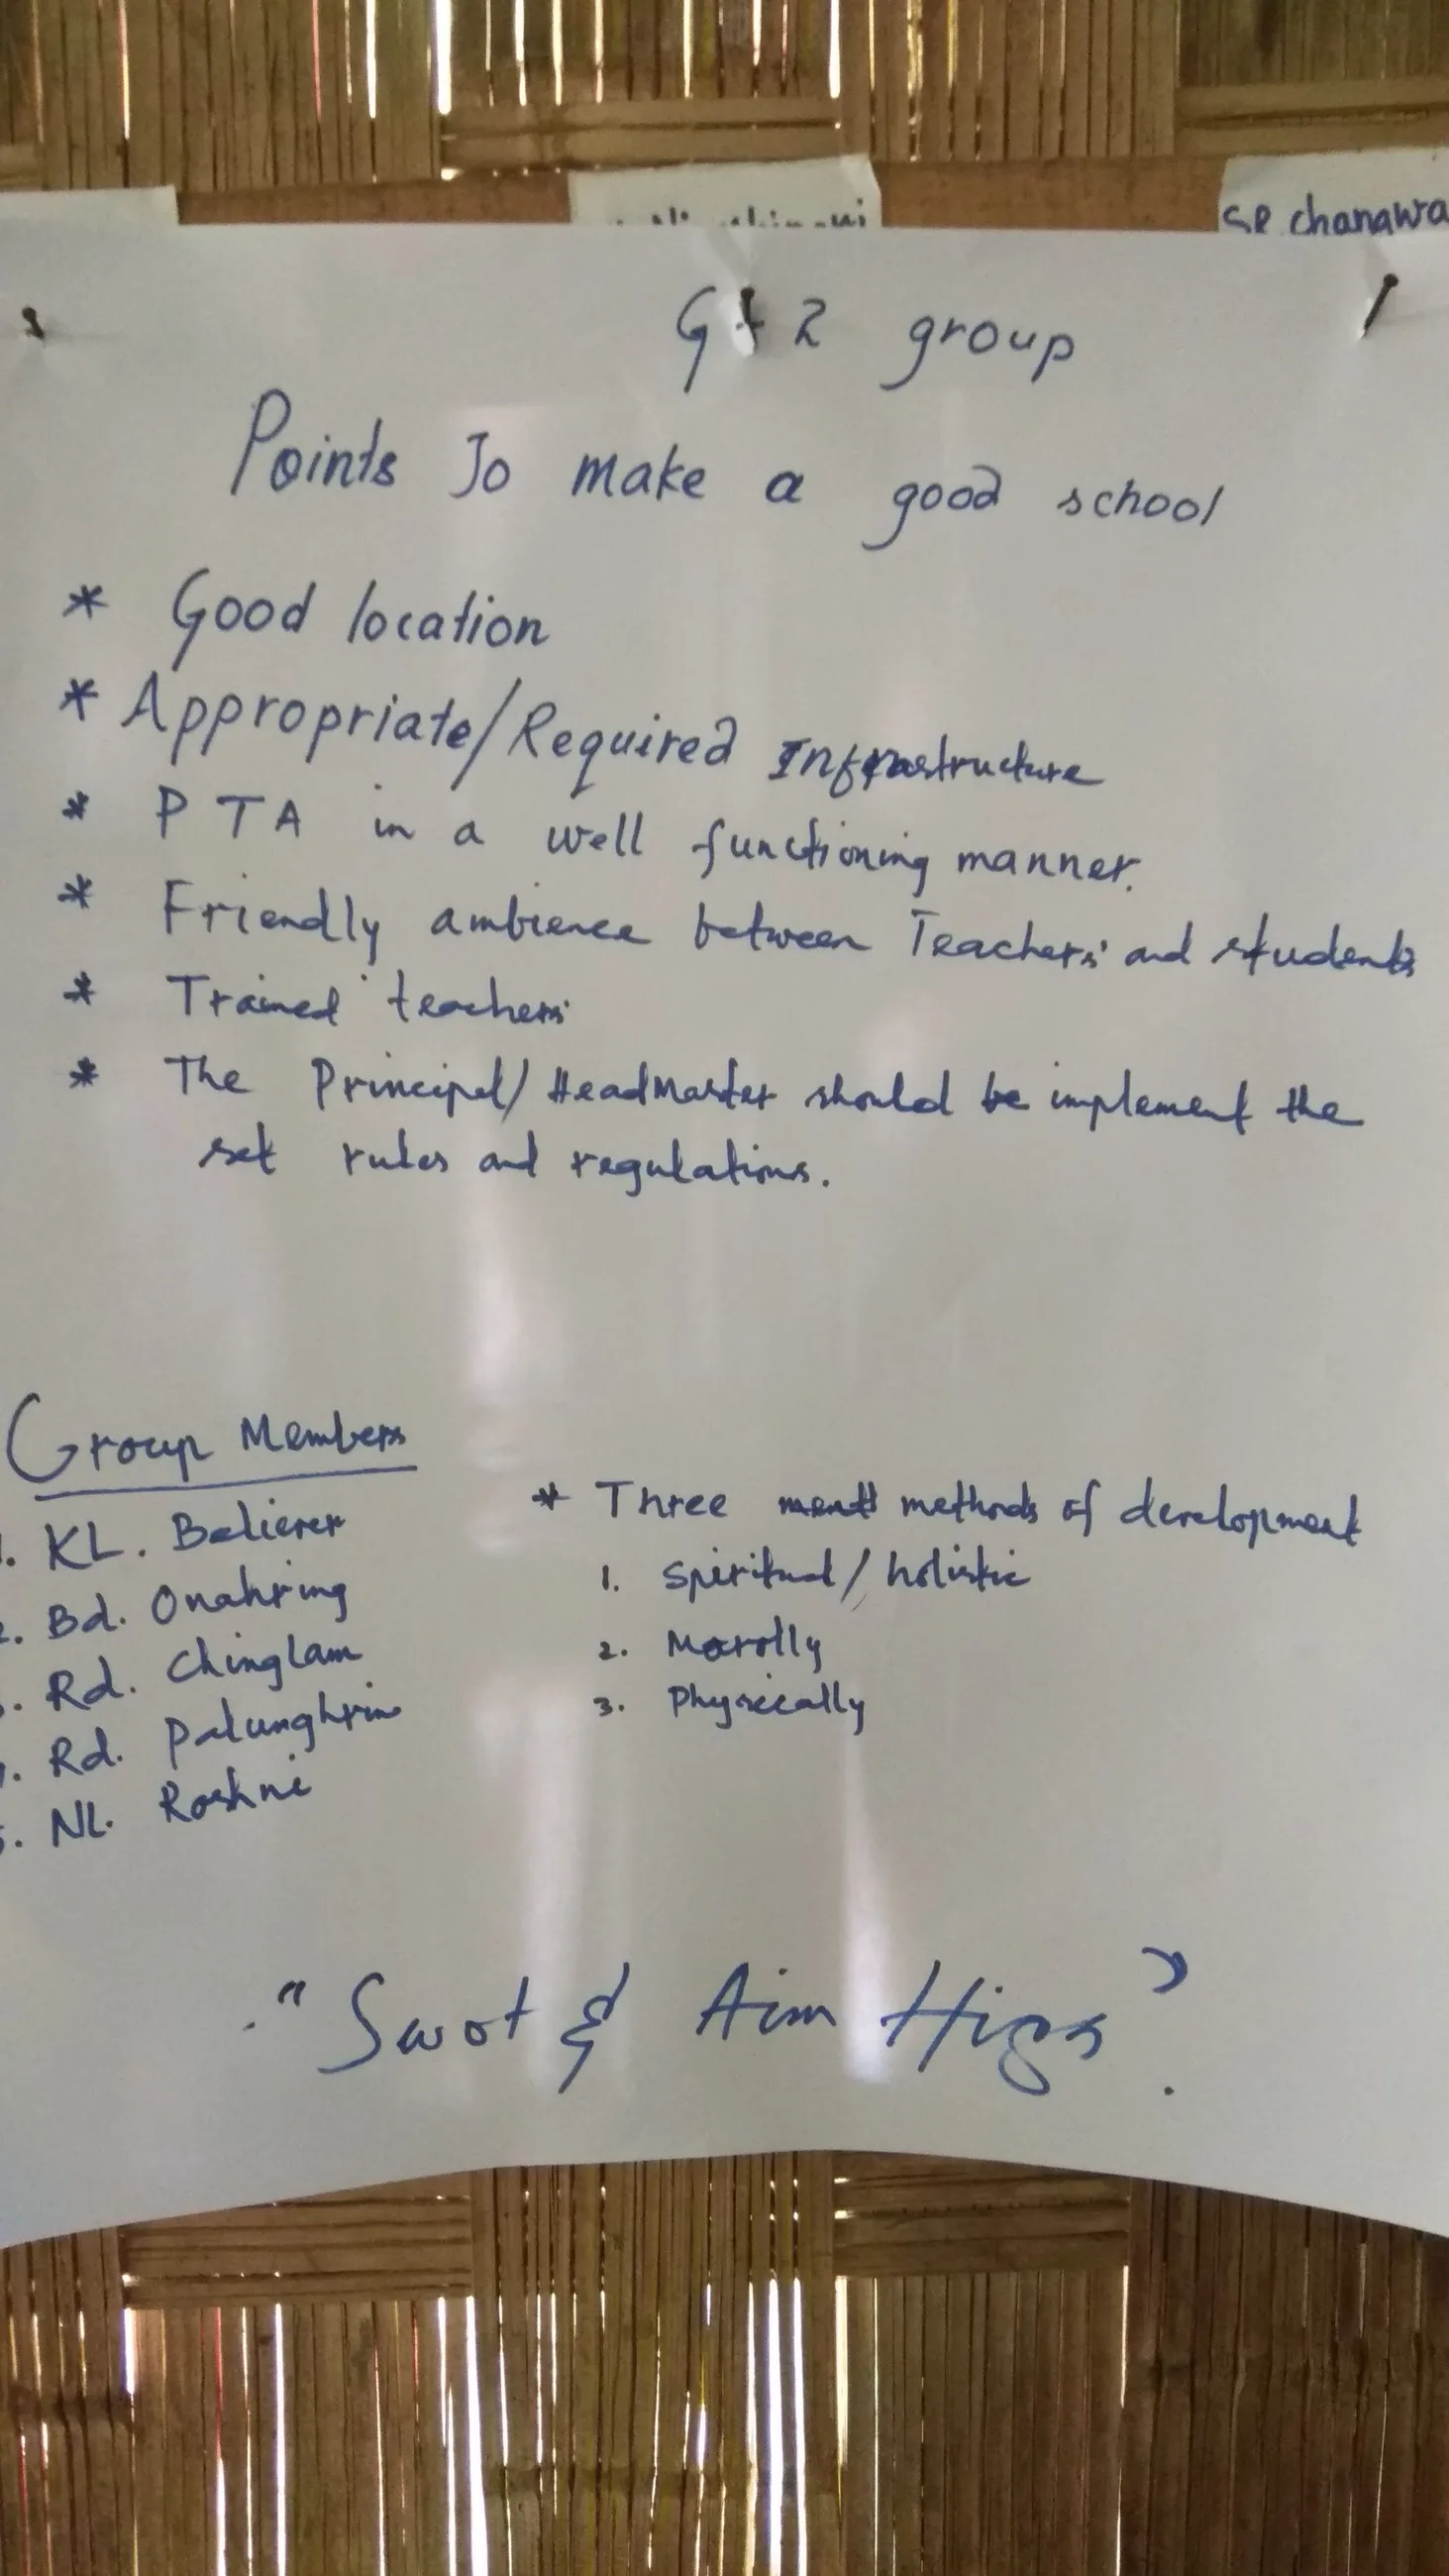 SR chanawa
G+2 group
Points To make a good school
* Good location
* Appropriate/Required Infrastructure
* PTA in a well functioning manner.
* Friendly ambience between Teachers and students
* Trained teachers
* The Principal/HeadMaster should be implement the
set rules and regulations.
Group Members
KL. Belierer
2. Bd. Onahring
Rd. Chinglam
Rd. Palunghrin
5. NL. Roshni
* Three methods of development
1. Spiritual/holistic
2. Morolly
3. Physically
"Swot & Aim High".